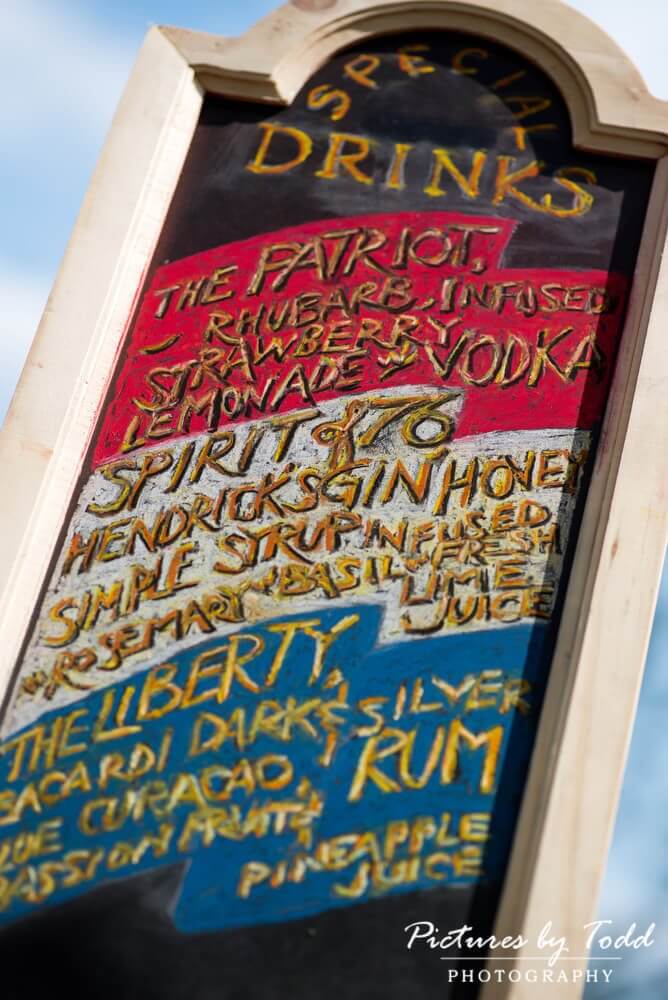 SPECIAL
DRINKS
THE PATRIOT,
RHUBARB, INFUSED
STRAWBERRY
LEMONADE VODKA
SPIRIT of 76
HENDRICKS GIN HONEY
SIMPLE SYRUP INFUSED
w/ ROSEMARY & BASIL & FRESH
LIME
JUICE
THE LIBERTY,
BACARDI DARK & SILVER
BLUE CURACAO, RUM
PASSION FRUIT &
PINEAPPLE
JUICE
Pictures by Todd
PHOTOGRAPHY